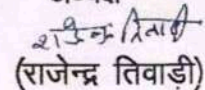 राजेन्द्र तिवाड़ी
(राजेन्द्र तिवाड़ी)